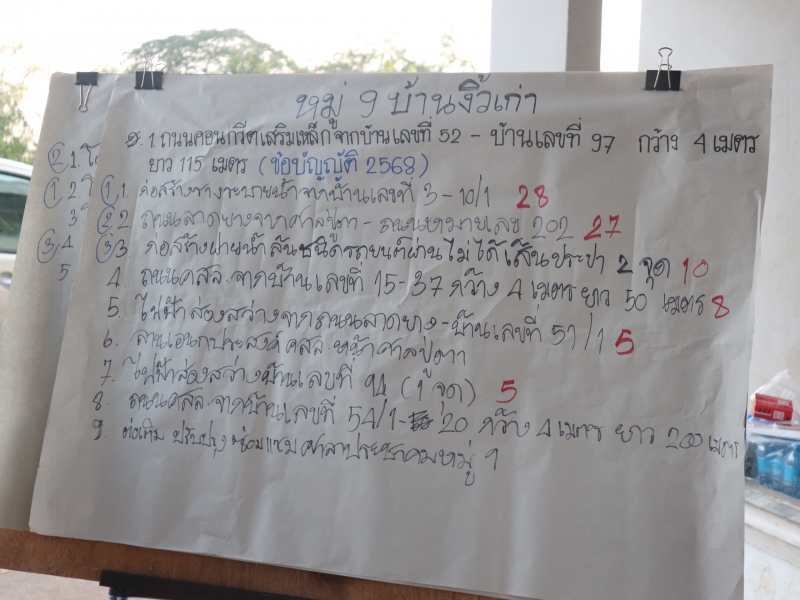 หมู่ 9 บ้านงิ้วเก่า
ย. 1. ถนนคอนกรีตเสริมเหล็ก จากบ้านเลขที่ 52 - บ้านเลขที่ 97 กว้าง 4 เมตร
ยาว 115 เมตร (ข้อบัญญัติ 2568)
1 1. ก่อสร้างรางระบายน้ำจากบ้านเลขที่ 3 - 10/1 28
2 2. ถนนลาดยางจากศาลปู่ตา - ถนนหมายเลข 202 27
3 3. ก่อสร้างฝายน้ำล้นชนิดรถยนต์ผ่านไม่ได้ 2 จุด 10
4. ถนนคสล. จากบ้านเลขที่ 15 - 37 กว้าง 4 เมตร ยาว 50 เมตร 8
5. ไฟฟ้าส่องสว่างจากถนนลาดยาง - บ้านเลขที่ 51/1 5
6. ลานเอนกประสงค์ คสล. หน้าศาลปู่ตา
7. ไฟฟ้าส่องสว่างบ้านเลขที่ 94 (1 จุด) 5
8. ถนนคสล. จากบ้านเลขที่ 54/1 - 20 กว้าง 4 เมตร ยาว 200 เมตร
9. ต่อเติม ปรับปรุง ซ่อมแซม ศาลาประชาคมหมู่ 9
2 1.
1 2.
3.
3 4
5.